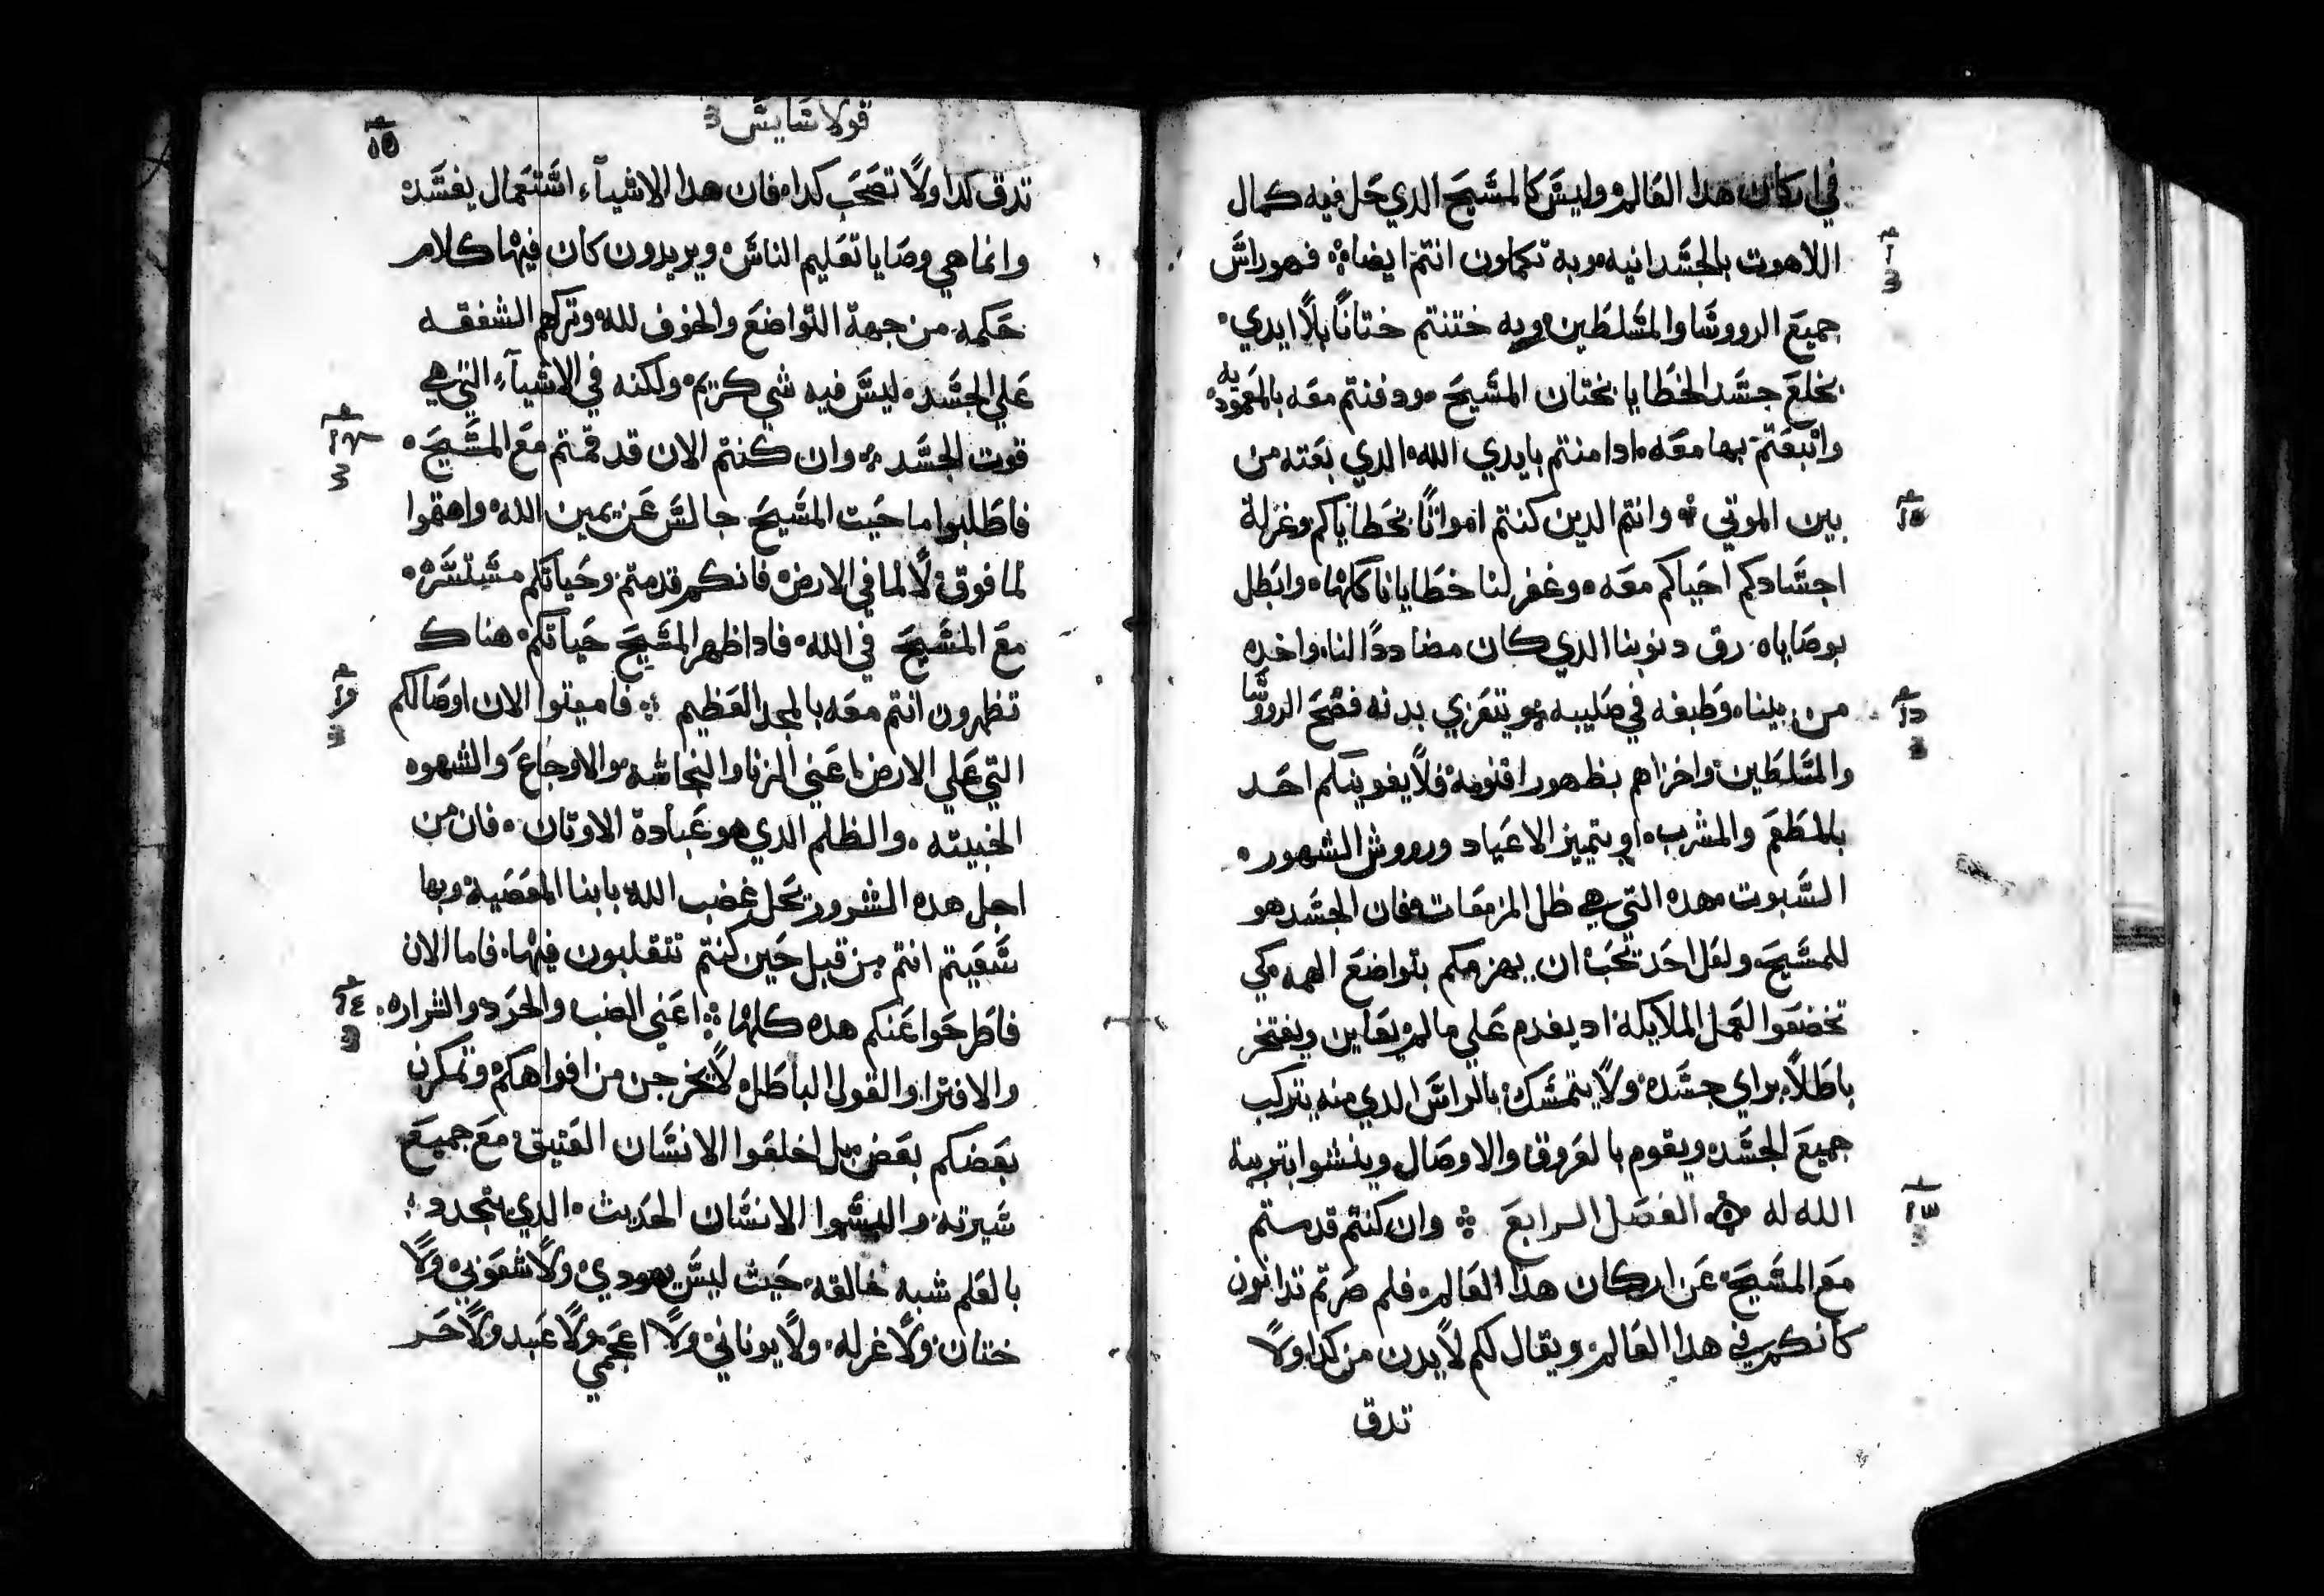 في اركان هدا العالم وليس كالمسيح الدي حل فيه كمال
اللاهوت بالجسدانيه وبه تكملون انتم ايضا فهو راس
جميع الرووسا والمسلطين وبه ختنتم ختانا بلا ايدي
بخلع جسد الخطايا بختان المسيح ودفنتم معه بالمعموديه
وانبعتم بها معه ادا منتم بايدي الله الدي بعته من
بين الموتي وانتم الدين كنتم امواتا بخطاياكم وغرلة
اجسادكم احياكم معه وغفر لنا خطايانا كلها وابطل
بوصاياه رق دنوبنا الدي كان مضاددا لنا واخده
من بيننا وطبعه في صليبه وبتعري بدنه فضح الرووسا
والمسلطين واخزاهم بظهور اقنومه فلا يغوينكم احد
بالمطعم والمشرب او بتمييز الاعياد ورووش الشهور
السبوت هده التي هي ظل المزمعات فان الجسد هو
للمسيح ولعل احد يحب ان يهزمكم بتواضع الهمه كي
تخضعوا لعمل الملايكة اد يقدم علي ما لم يعاين ويفتخر
باطلا براي جسده ولا يتمسك بالراس الدي منه يتركب
جميع الجسد ويقوم بالعروق والاوصال وينشوا بتربية
الله له الفصل الرابع وان كنتم قد ستم
مع المسيح عن اركان هدا العالم فلم صرتم تدانون
كانكم في هدا العالم ويقال لكم لا يدن من كدا ولا
تدق
قولاسايس
١٥
تدق كدا ولا تصحب كدا فان هدا الاشيآء استعمال يفسده
وانما هي وصايا تعليم الناس ويريدون كان فيها كلام
حكمه من جهة التواضع والخوف لله وتركهم الشفقه
علي الجسد ليس فيه شي كريم ولكنه في الاشيآء التي هي
قوت الجسد وان كنتم الان قد قمتم مع المسيح
فاطلبوا ما حيت المسيح جالس عن يمين الله واهتموا
لما فوق لا لما في الارض فانكم قد متم وحياتكم مستتره
مع المسيح في الله فادا ظهر المسيح حياتكم هناك
تظهرون انتم معه بالمجد العظيم فاميتوا الان اوصالكم
التي علي الارض اعني الزنا والنجاسه والاوجاع والشهوه
الخبيته والظلم الدي هو عبادة الاوتان فان من
اجل هده الشرور تحل غضب الله بابنا المعصية وبها
سعيتم انتم من قبل حين كنتم تتقلبون فيها فاما الان
فاطرحوا عنكم هده كلها اعني الضب والحرد والشراره
والافترا والقول الباطل لا يخرجن من افواهكم وتمكرن
بعضكم بعض بل اخلعوا الانسان العتيق مع جميع
سيرته والبسوا الانسان الحديث الدي يتجدد
بالعلم شبه خالقه حيث ليس يهودي ولا شعوبي ولا
ختان ولا غرله ولا يوناني ولا اعجمي ولا عبد ولا حر